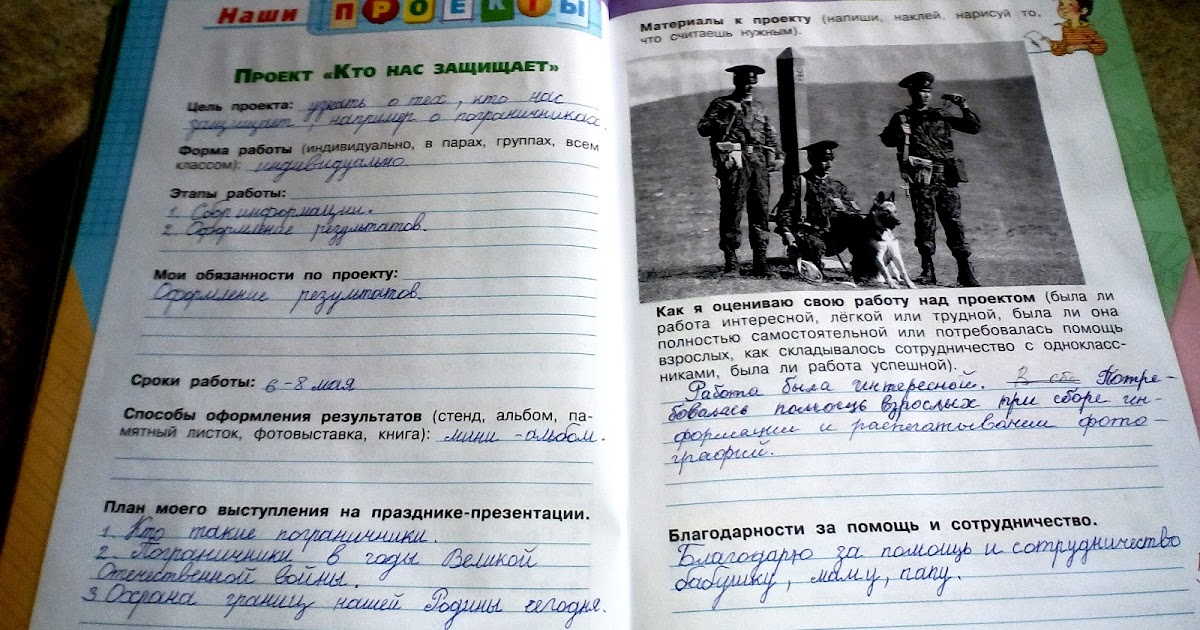 Наши ПРОЕКТЫ
ПРОЕКТ «КТО НАС ЗАЩИЩАЕТ»
Цель проекта: узнать о тех, кто нас
защищает, например о пограничниках.
Форма работы (индивидуально, в парах, группах, всем
классом): индивидуально
Этапы работы:
1. Сбор информации.
2. Оформление результатов.
Мои обязанности по проекту:
Оформление результатов.
Сроки работы: 6-8 мая
Способы оформления результатов (стенд, альбом, па-
мятный листок, фотовыставка, книга): мини-альбом.
План моего выступления на празднике-презентации.
1. Кто такие пограничники.
2. Пограничники в годы Великой
Отечественной войны.
3 Охрана границ нашей Родины сегодня.
Материалы к проекту (напиши, наклей, нарисуй то,
что считаешь нужным).
Как я оцениваю свою работу над проектом (была ли
работа интересной, лёгкой или трудной, была ли она
полностью самостоятельной или потребовалась помощь
взрослых, как складывалось сотрудничество с однокласс-
никами, была ли работа успешной).
Работа была интересной. Потре-
бовалась помощь взрослых при сборе ин-
формации и распечатывании фото-
графий.
Благодарности за помощь и сотрудничество.
Благодарю за помощь и сотрудничество
бабушку, маму, папу.